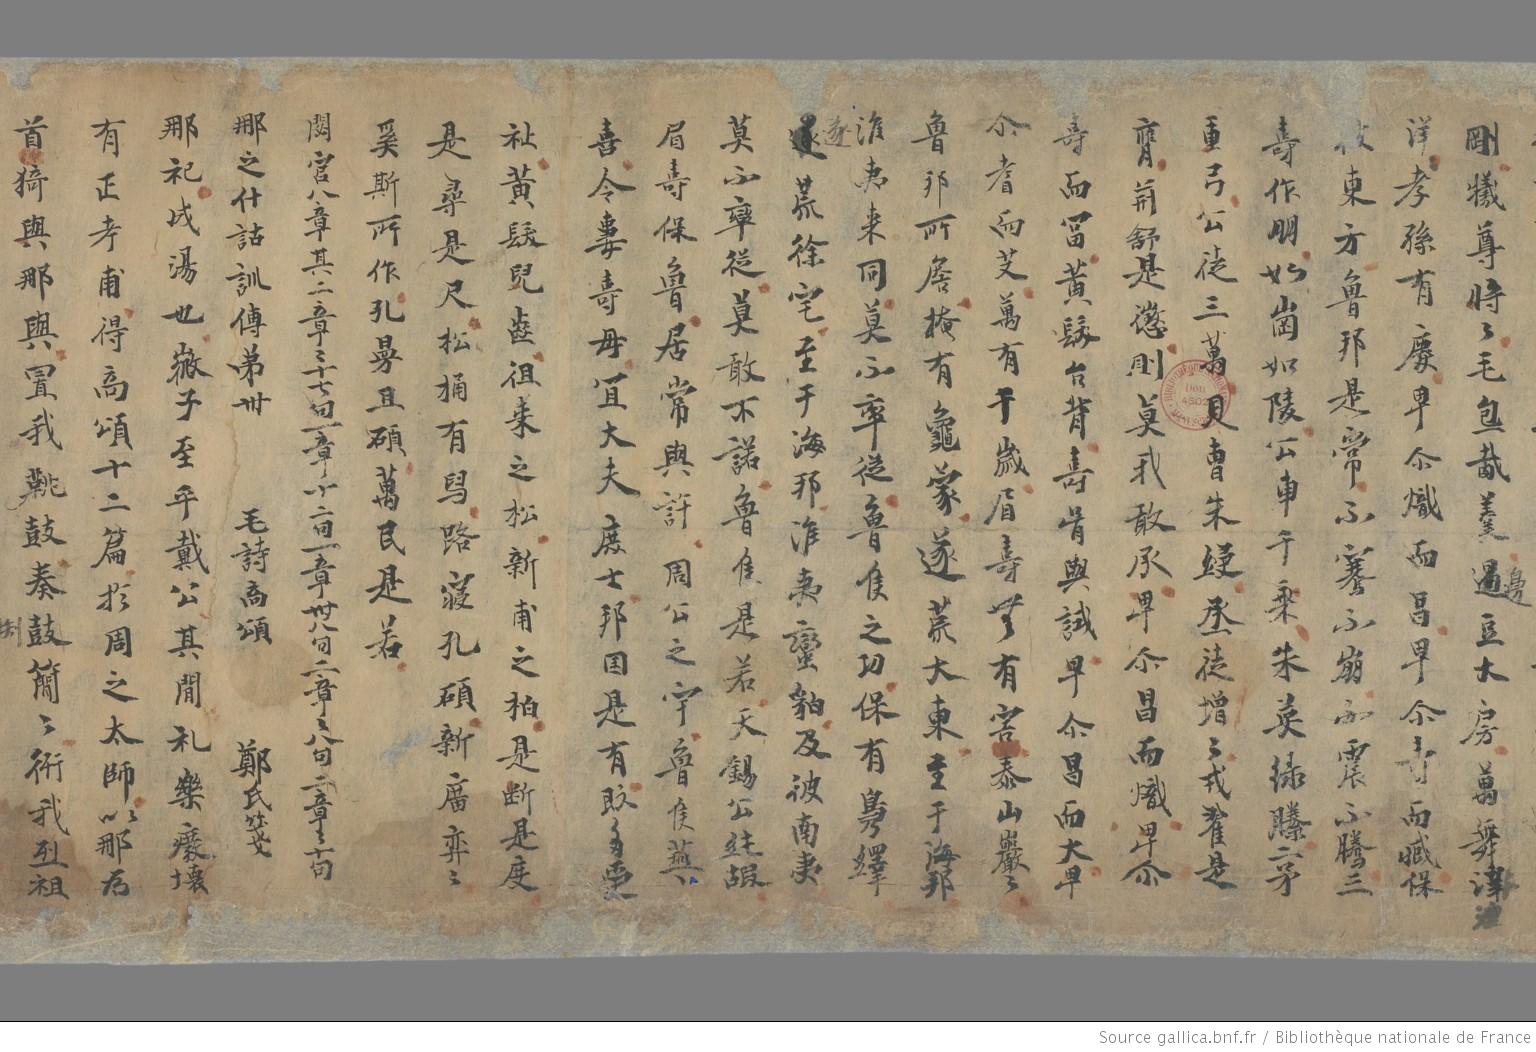 剛犧尊將〻毛炰胾羹籩豆大房萬舞洋
洋孝孫有慶卑尒熾而昌卑尒壽而臧保
彼東方魯邦是常不騫不崩不震不騰三
壽作朋如崗如陵公車千乘朱英綠縢二矛
重弓公徒三萬貝胄朱綅烝徒增〻戎翟是
膺荊舒是懲則莫我敢承卑尒昌而熾卑尒
壽而富黃髮台背壽胥與試卑尒昌而大卑
尒耆而艾萬有千歲眉壽无有害泰山巖〻
魯邦所詹掩有龜蒙遂荒大東至于海邦
淮夷來同莫不率從魯侯之功保有鳧繹
遂荒徐宅至于海邦淮夷蠻貊及彼南夷
莫不率從莫敢不諾魯侯是若天錫公純嘏
眉壽保魯居常與許周公之宇魯侯燕
喜令妻壽母宜大夫庶士邦國是有既多受
祉黃髮兒齒徂來之松新甫之柏是斷是度
是尋是尺松桷有舄路寢孔碩新廟弈〻
奚斯所作孔曼且碩萬民是若
閟宮八章其二章章十七句一章十二句一章卅八句二章章八句二章章十句
那之什詁訓傳第卅 毛詩商頌 鄭氏箋
那祀成湯也微子至乎戴公其閒礼樂癈壞
有正考甫得商頌十二篇扵周之太師以那為
首猗與那與置我鞉鼓奏鼓簡〻衎我烈祖
Source gallica.bnf.fr / Bibliothèque nationale de France